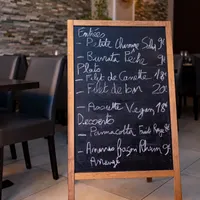 Entrées
- Petite Chèvre Silly 9€
- Burrata Pêche 9€
Plats
- Filet de Canette 18€
- Filet de bar 20€
- Assiette Vegan 18€
Desserts
- Pannacotta Fruits Rouges
- Ananas façon Rhum 9€